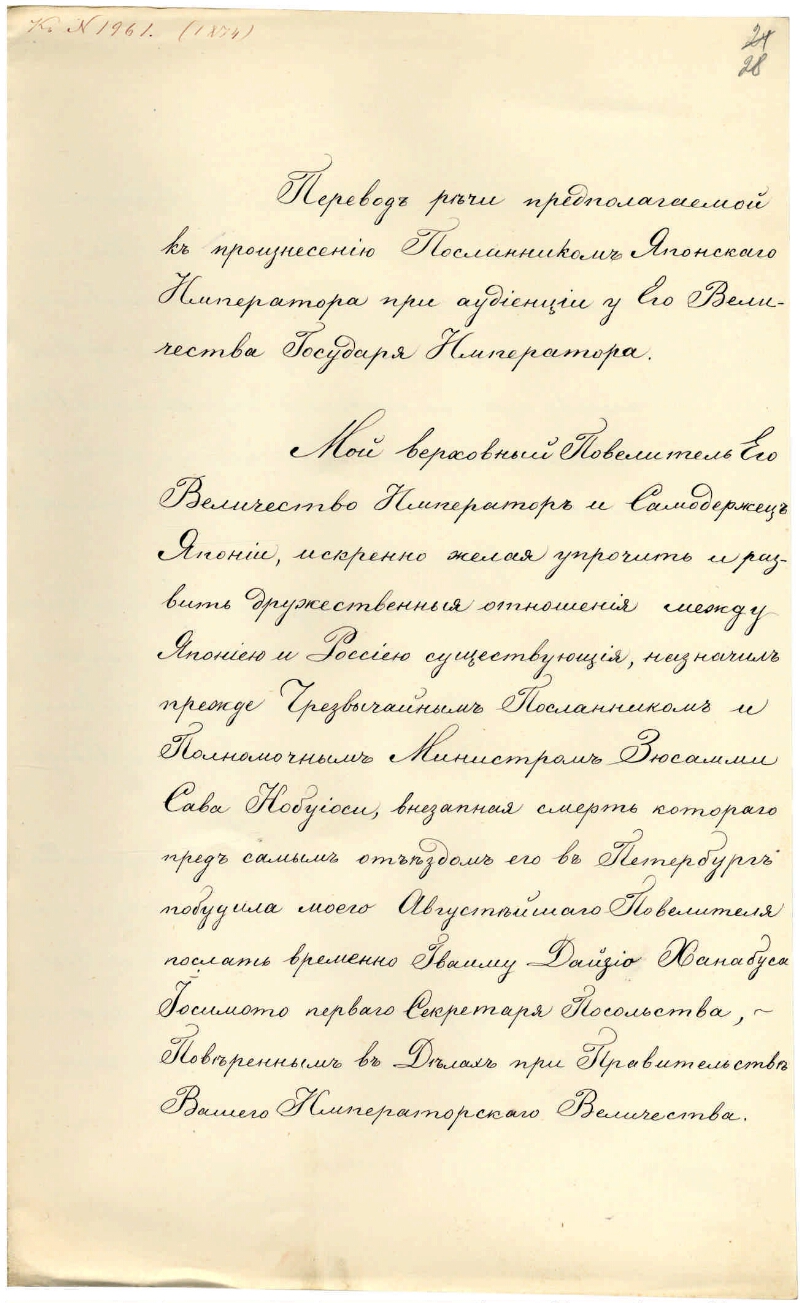 К. N 1961. (1874)
24
28
Переводъ рѣчи предполагаемой
къ произнесенію Посланникомъ Японскаго
Императора при аудіенціи у Его Вели-
чества Государя Императора.
Мой верховный Повелитель Его
Величество Императоръ и Самодержецъ
Японіи, искренно желая упрочить и раз-
вить дружественныя отношенія между
Японіею и Россіею существующія, назначилъ
прежде Чрезвычайнымъ Посланникомъ и
Полномочнымъ Министромъ Зюсамми
Сава Нобуіоси, внезапная смерть котораго
предъ самымъ отъѣздомъ его въ Петербургъ
побудила моего Августѣйшаго Повелителя
послать временно Гваиму Дайзіо Ханабуса
Іосимото перваго Секретаря Посольства, ~
Повѣреннымъ въ Дѣлахъ при Правительствѣ
Вашего Императорскаго Величества.